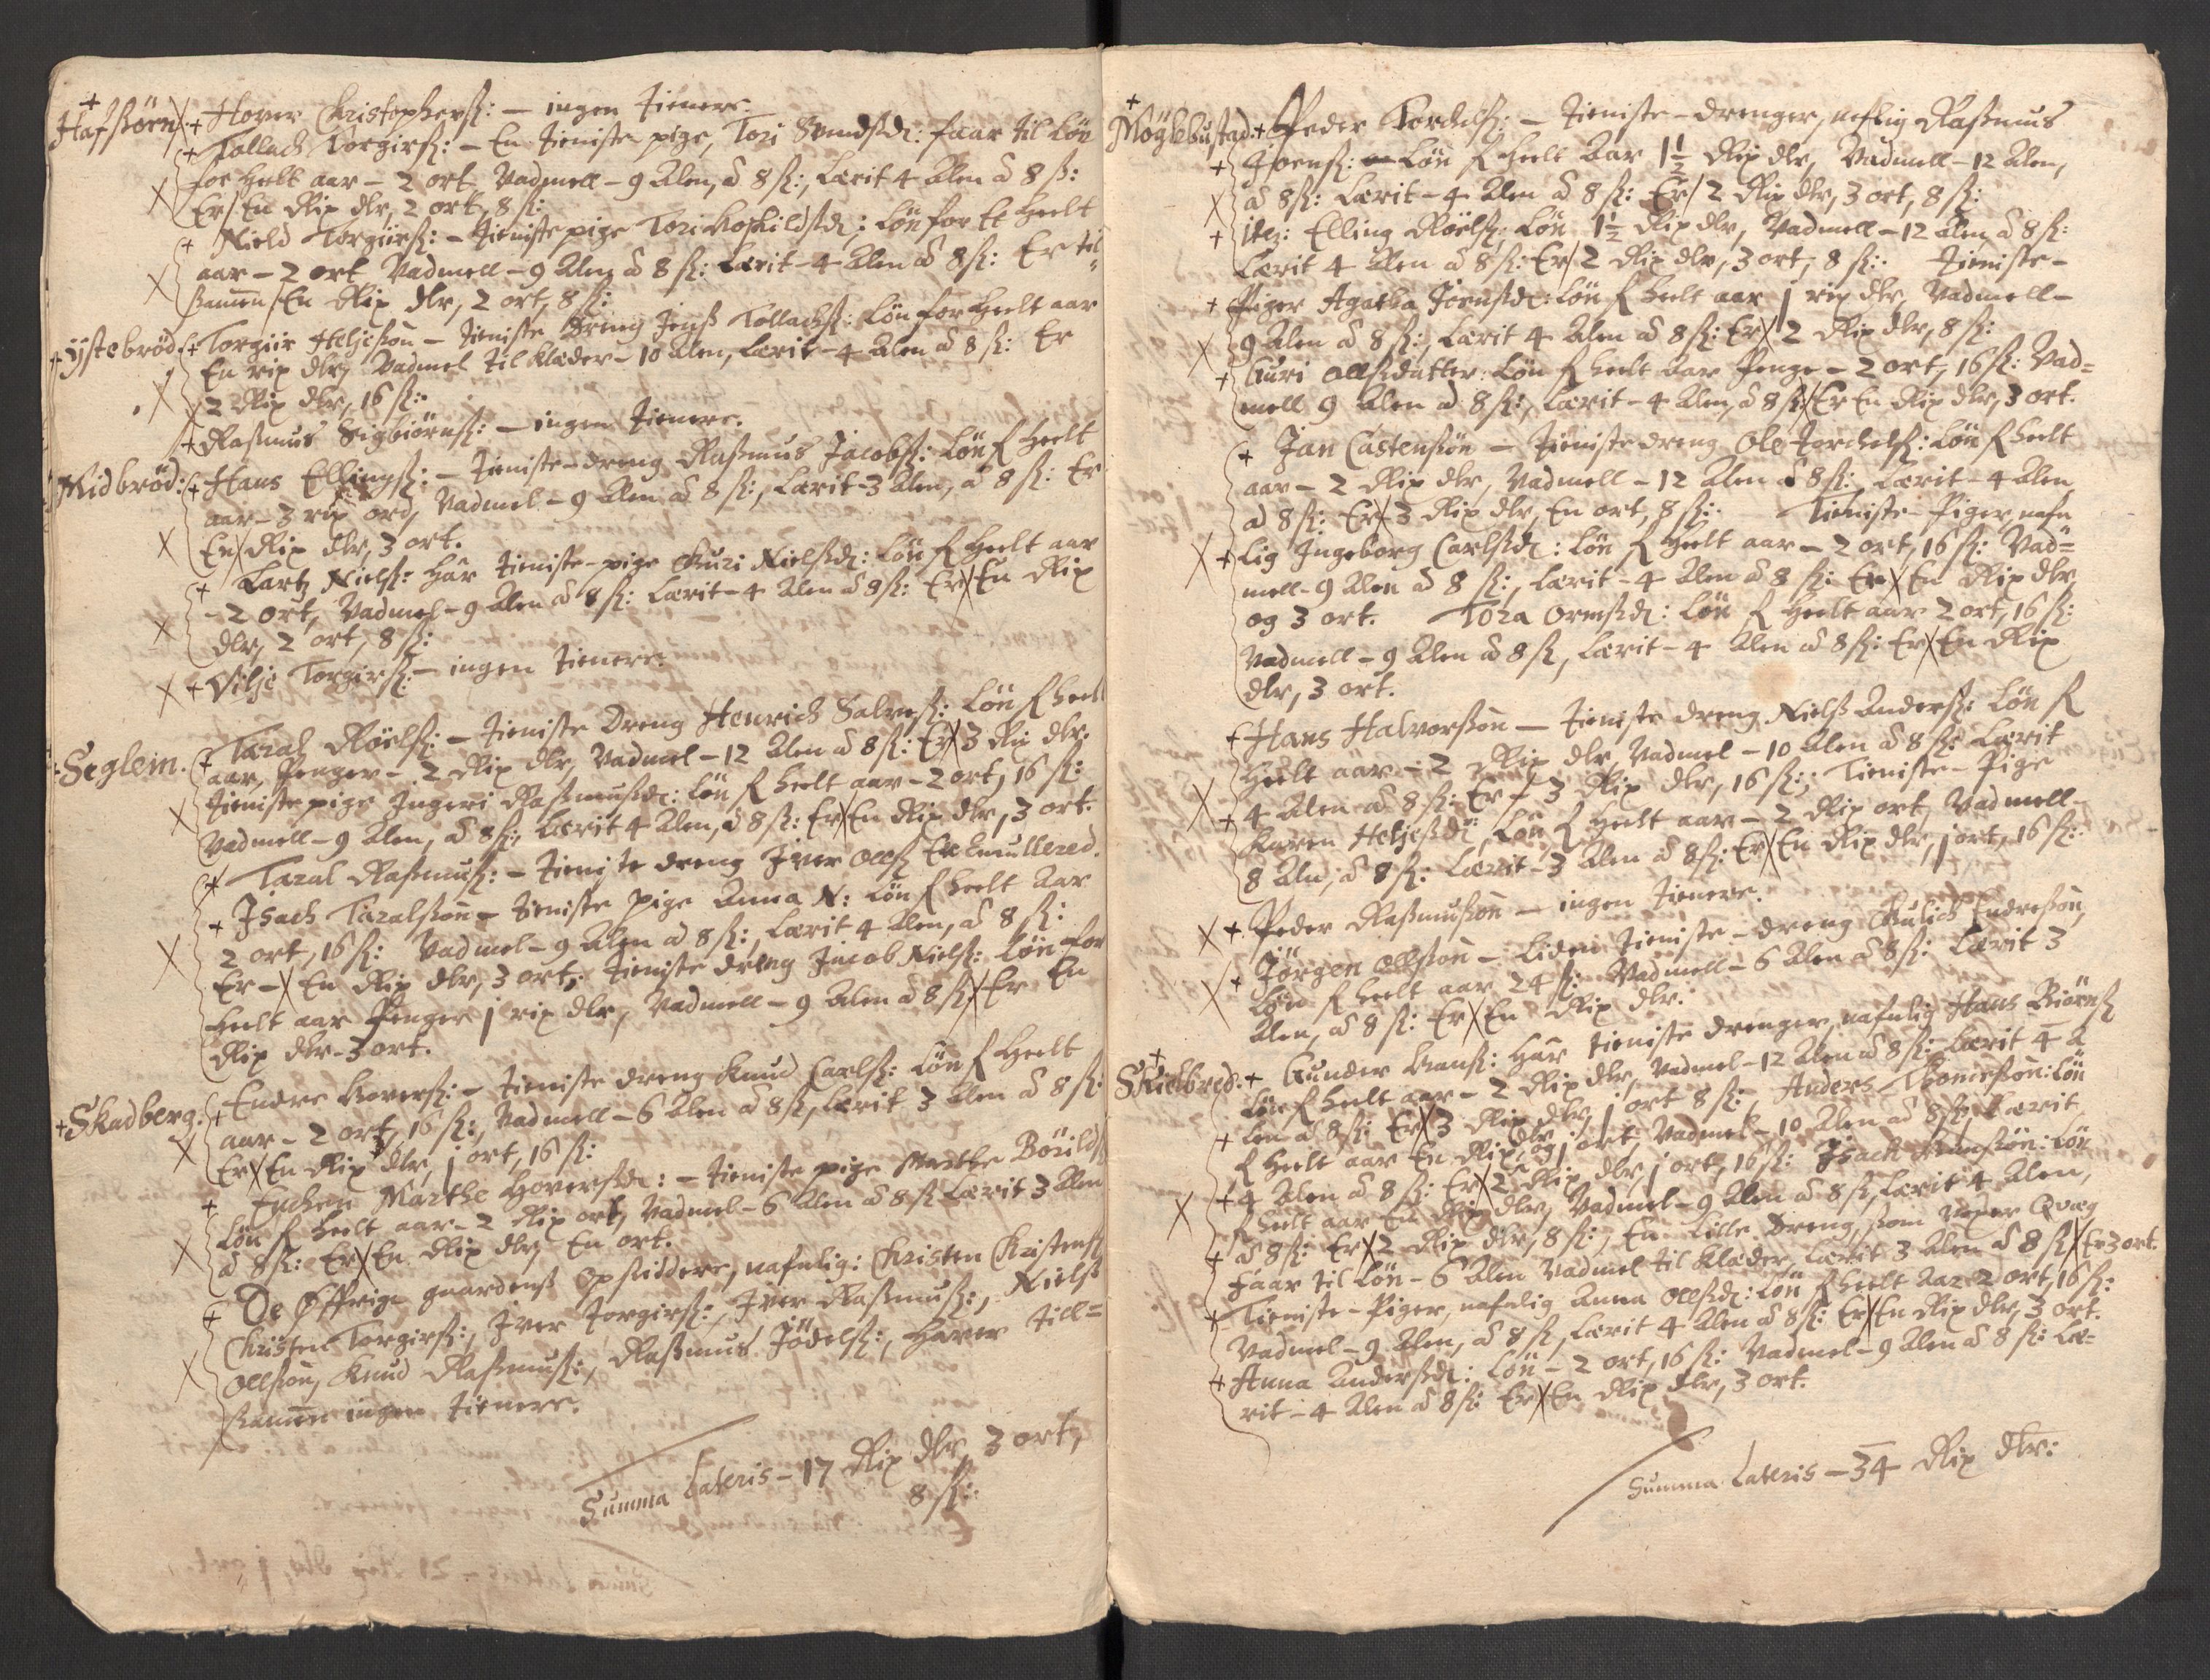 Hafssörn + Hover Christophersß: – ingen tienere.
+ Tollach Torgirsß: – En tieniste pige, Tori Svendsdr: faar til Løn
for heelt aar – 2 ort, Vadmell – 9 Alen, à 8 sß:, Lærit 4 Alen à 8 ß:
Er / En Rix dlr, 2 ort, 8 sß:
+ Nield Torgiirsß: – tieniste pige Tori dr: Løn for Et heelt
aar – 2 ort, Vadmell – 9 Alen à 8 sß: Lærit – 4 Alen à 8 sß: Er til-
samen / En Rix dlr, 2 ort, 8 sß:
+ Ÿstebrød: + Torgiir Heljesøn – tieniste Dreng Jenß Tollachsß: Løn for heelt aar
En rix dlr, Vadmel til Klæder – 10 Alen, Lærit – 4 Alen à 8 sß: Er
2 Rix dlr, 16 sß:
+ Rasmus Sigbiørnsß: – ingen tienere.
Midbrød: + Hans Ellingsß: – tieniste-dreng Rasmus Jacobsß: Løn f heelt
aar – 3 rix ord, Vadmel – 9 Alen à 8 sß:, Lærit – 3 Alen, à 8 sß: Er
En Rix dlr, 3 ort.
+ Lartz Nielsß: har tieniste-pige Guri Nielsdr: Løn f heelt aar
– 2 ort, Vadmel – 9 Alen à 8 sß: Lærit – 4 Alen à 8 sß: Er / En Rix
dlr, 2 ort, 8 sß:
+ Vilje Torgirsß: – ingen tienere.
+ Seglem. + Taral Röelsß: – tieniste Dreng Henrich Salvesß: Løn f heelt
aar, Penger – 2 Rix dlr, Vadmel – 12 Alen à 8 sß: Er 3 Rix dlr.
tieniste pige Ingeri Rasmusdr: Løn f heelt aar – 2 ort, 16 sß:
Vadmell – 9 Alen, à 8 sß:, Lærit 4 Alen, à 8 sß: Er / En Rix dlr, 3 ort.
+ Taral Rasmusß: – tieniste dreng Iver Olleß Enrullered.
+ Isach Taralsøn – tieniste pige Anna N: Løn f heelt Aar
2 ort, 16 sß: Vadmel – 9 Alen à 8 sß:, Lærit 4 Alen, à 8 sß:
Er – En Rix dlr, 3 ort; tieniste dreng Jacob Nielsß: Løn for
heelt aar Penger j rix dlr, Vadmell – 9 Alen à 8 sß: Er En
Rix dlr – 3 ort.
+ Skadberg. + Endre Hoversß: – tieniste dreng Knud Carlsß: Løn f heelt
aar – 2 ort, 16 sß:, Vadmell – 6 Alen à 8 sß, Lærit 3 Alen à 8 sß:
Er / En Rix dlr, j ort, 16 sß:
+ Enchen Marthe Hoversdr: – tieniste pige Marthe Börilds
Løn f heelt aar – 2 Rix ort, Vadmel – 6 Alen à 8 sß Lærit 3 Alen
à 8 sß: Er / En Rix dlr, En ort.
+ De Øffrige gaardenß Opsidere, nafnlig: Christen Christensß
Christen Torgirsß:, Iver Torgirsß:, Iver Rasmusß:, Nielß
Ollsøn, Knud Rasmusß:, Rasmus Jödelsß:, Haver till-
samen ingen tienere.
Summa Lateris – 17 Rix dlr, 3 ort,
8 sß:
+ Möglebustad. + Peder Torchelsß: – tieniste-drenger, neflig Rasmus
+ Joensß: Løn f heelt Aar 1½ Rix dlr, Vadmell – 12 Alen,
à 8 sß: Lærit – 4 Alen à 8 sß: Er / 2 Rix dlr, 3 ort, 8 sß:
+ Elling Röelsß: Løn 1½ Rix dlr, Vadmell – 12 Alen à 8 sß:
Lærit 4 Alen à 8 sß: Er / 2 Rix dlr, 3 ort, 8 sß: Tieniste-
+ Piger Agatha Jörensdr: Løn f heelt aar j rix dlr, Vadmell –
9 Alen à 8 sß:, Lærit 4 Alen à 8 sß: Er 2 Rix dlr, 8 sß:
+ Guri Ollsdatter: Løn f heelt Aar Penge – 2 ort, 16 sß: Vad=
mell 9 Alen à 8 sß:, Lærit – 4 Alen, à 8 sß: Er En Rix dlr, 3 ort.
+ Jan Castensøn – tieniste dreng Ole Torchelsß: Løn f heelt
aar – 2 Rix dlr, Vadmell – 12 Alen à 8 sß:, Lærit – 4 Alen
à 8 sß: Er 3 Rix dlr, En ort, 8 sß: Tieniste-Piger, nafn
+ Lig Ingeborg Carlsdr: Løn f heelt aar – 2 ort, 16 sß: Vad=
mell – 9 Alen à 8 sß:, Lærit – 4 Alen à 8 sß: Er / En Rix dlr
og 3 ort. Tora Ormsdr: Løn f heelt aar 2 ort, 16 sß:
Vadmell – 9 Alen à 8 sß, Lærit – 4 Alen à 8 sß: Er / En Rix
dlr, 3 ort.
+ Hans Halvorsøn – tieniste dreng Nielß Andersß: Løn f
heelt aar – 2 Rix dlr, Vadmel – 10 Alen à 8 sß: Lærit
+ 4 Alen à 8 sß: Er – 3 Rix dlr, 16 sß:; Tieniste-Pige
Karen Heljesdr: Løn f heelt aar – 2 Rix ort, Vadmell –
8 Aln, à 8 sß: Lærit – 3 Alen à 8 sß: Er / En Rix dlr, j ort, 16 sß:
+ Peder Rasmusøn – ingen tienere.
+ Jörgen Ollsøn – Liden tieniste-dreng Gulich Endresøn,
Løn f heelt aar 24 sß: Vadmell – 6 Alen à 8 sß: Lærit 3
Alen, à 8 sß: Er / En Rix dlr.
+ Skielbred. + Gunder Hansß: har tieniste drenger, nafnlig Hans Biørnsß
Løn f heelt aar – 2 Rix dlr, Vadmel – 12 Alen à 8 sß: Lærit 4 A
+ len à 8 sß: Er 3 Rix dlr, j ort 8 sß:, Anders Thomesøn: Løn
f heelt aar En Rix dlr, og j ort, Vadmel – 10 Alen à 8 sß: Lærit
+ 4 Alen à 8 sß: Er 2 Rix dlr, j ort, 16 sß: Isach: Løn
f heelt aar En Rix dlr, Vadmel – 9 Alen à 8 sß, Lærit 4 Alen,
+ à 8 sß: Er 2 Rix dlr, 8 sß:, En Lille Dreng, som Qvæg
Faar til Løn – 6 Alen Vadmel til Klæder, Lærit 3 Alen à 8 sß / Er 3 ort.
+ Tieniste-Piger, nafnlig Anna Ollsdr: Løn f heelt Aar 2 ort, 16 sß:
Vadmel – 9 Alen, à 8 sß, Lærit 4 Alen à 8 sß: Er / En Rix dlr, 3 ort.
+ Anna Andersdr: Løn – 2 ort, 16 sß: Vadmel – 9 Alen à 8 sß: Læ-
rit – 4 Alen à 8 sß: Er / En Rix dlr, 3 ort.
Summa Lateris – 34 Rix dlr: